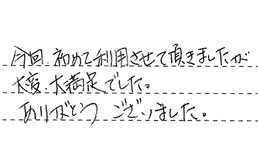 今回 初めて利用させて頂きましたが
大変、大満足でした。
ありがとう ございました。